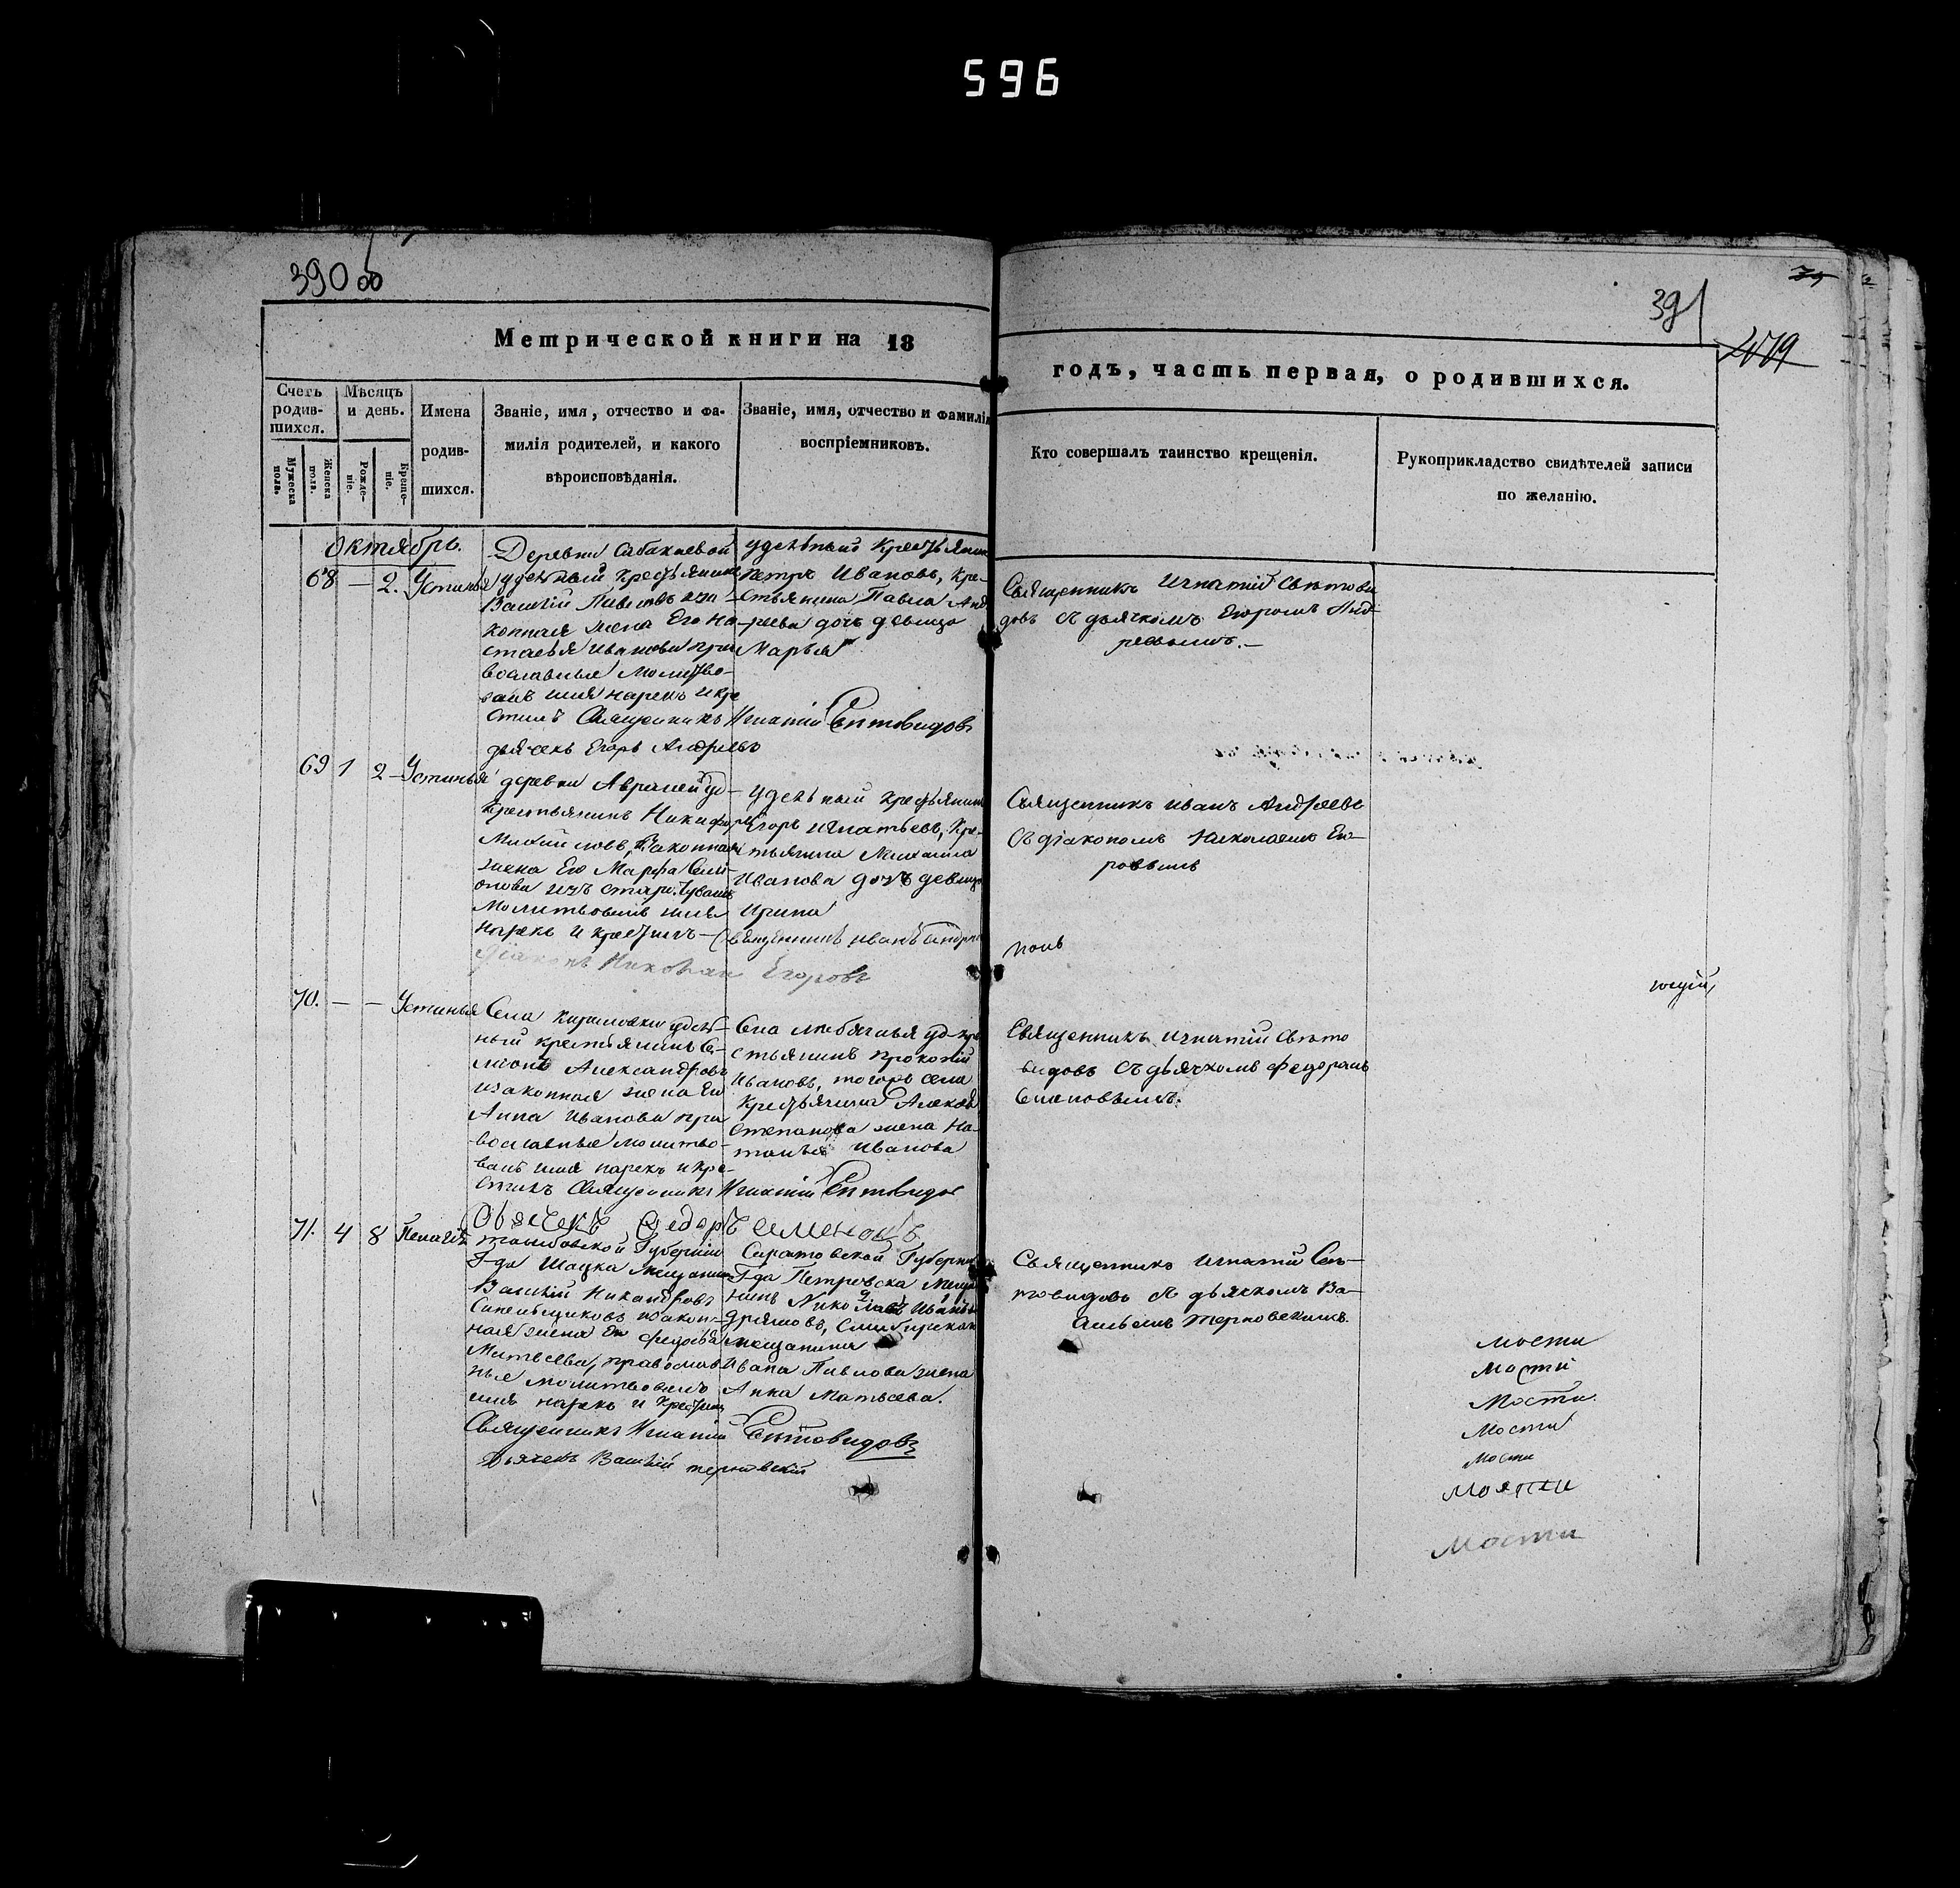 596
390 об
391
479
Метрической книги на 18
годъ, часть первая, о родившихся.
Счетъ родив-шихся.
Мужеска пола.
Женска пола.
Мѣсяцъ и день.
Рожде-ніе.
Креще-ніе.
Имена
родив-
шихся.
Званіе, имя, отчество и фа-
милія родителей, и какого
вѣроисповѣданія.
Званіе, имя, отчество и фамилія
воспріемниковъ.
Кто совершалъ таинство крещенія.
Рукоприкладство свидѣтелей записи
по желанію.
Октябрь.
68 — 2. Устинья
Деревни Сабакаевой
удельный Крестьянинъ
Василій
конная жена Его На-
стасья Иванова пра
вославные Молитво-
валъ имя нарекъ и кре
стилъ Священникъ Игнатій Свѣтовидовъ
дьячекъ Егоръ Андреевъ
удельный Крестьянин
Петръ Ивановъ, Кре-
стьянина Павла Анд
реева дочь девица
Марья
Священникъ Игнатій Свѣтови
довъ съ дьячкомъ Егоромъ Анд
реевымъ.—
69 1 2 Устинья
деревни уд-
Крестьянинъ Никифоръ
законная
жена Его Марфа Сем-
онова изъ стар. Чувашъ
Молитвовалъ имя
нарекъ и крестилъ— Священникъ Иванъ Андре
Діаконъ Николай Егоровъ
удельный крестьянинъ
Егоръ Игнатьевъ, Кре-
стьянина Михаила
Иванова дочь девица
Ирина
Священникъ Иванъ Андреевъ
Съ діакономъ Николаемъ Его-
ровымъ
70. — — Устинья
Села Кириловки удель-
ный крестьянинъ Се-
міонъ Александровъ
изаконная жена Его
Анна Иванова пра
вославные молитво-
валъ имя нарекъ и кре-
стилъ Священникъ Игнатій Свѣтовидовъ
Дьячекъ Федоръ Семеновъ
Села Лебяжья уд-кре
стьянинъ Прокопій
Ивановъ, тогожъ села
Крестьянина Алексѣя
Степанова жена На-
талья Иванова
Священникъ Игнатій Свѣто
видовъ Съ дьячкомъ Федоромъ
Семеновымъ.
71. 4 8 Пелагія
тамбовской Губерніи
Г-да Шацка Мещанинъ
Василій Никаноровъ
изакон-
ная жена Его Федосья
Матвеева, православ
ные Молитвовалъ
имя нарекъ и крестилъ
Священникъ Игнатій Свѣтовидовъ
Дьячекъ Василій терновскій
Саратовской Губерніи
Г-да Петровска Меща
нинъ Николай Ивановъ
Симбирскаго
мещанина
Ивана Павлова жена
Анна Матвеева.
Священникъ Игнатій Свѣ-
товидовъ съ дьячкомъ Ва-
сильемъ терновскимъ.
мости
Мости
Мости.
Мости
Мости
Мости